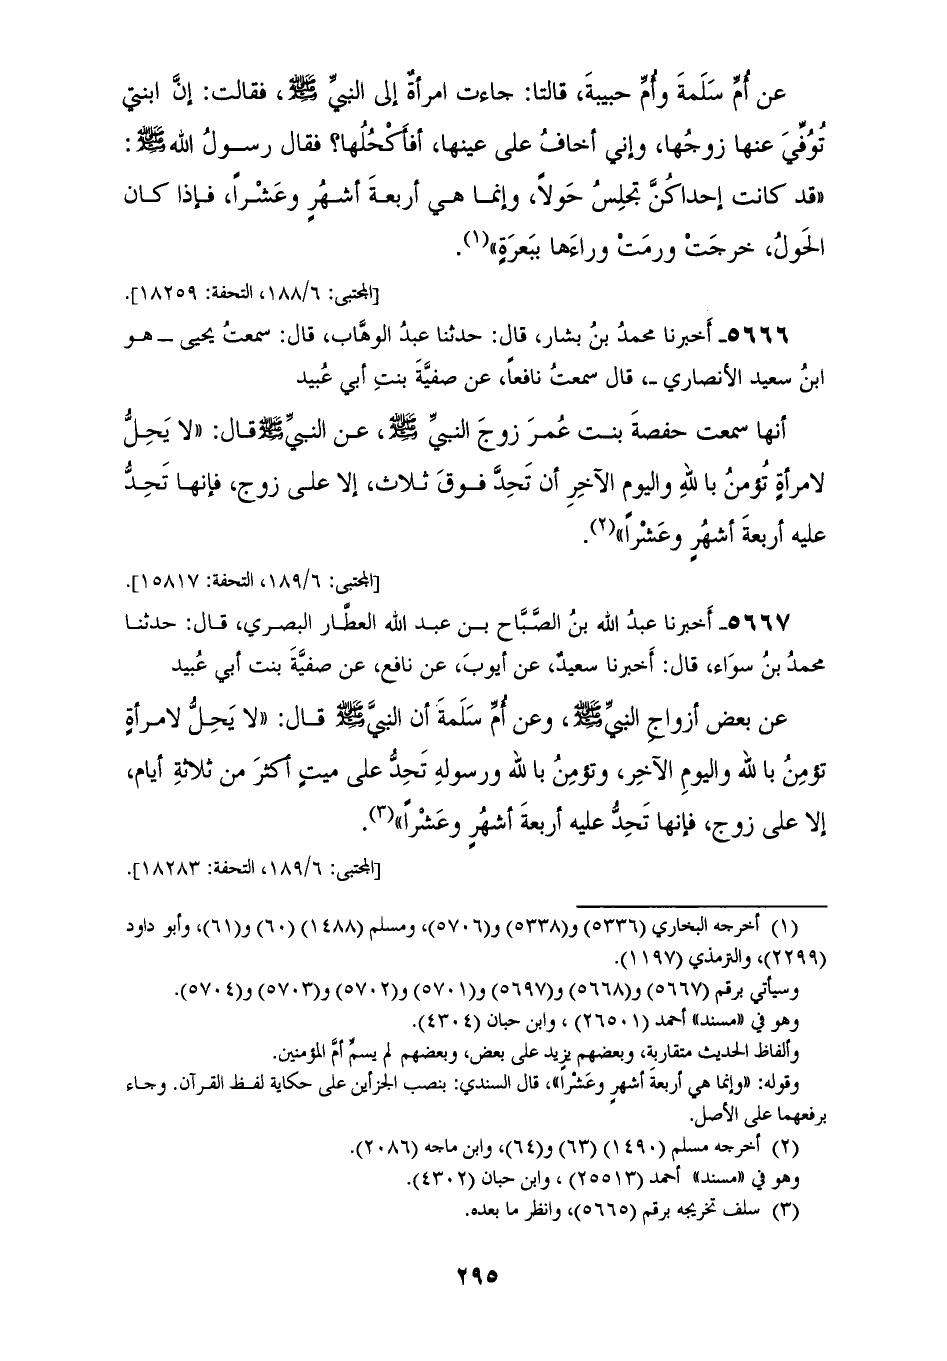 عن أُمِّ سَلَمةَ وأُمِّ حبيبةَ، قالتا: جاءت امرأةٌ إلى النبيِّ ﷺ، فقالت: إنَّ ابنتي
تُوُفِّيَ عنها زوجُها، وإني أخافُ على عينها، أفأَكْحُلُها؟ فقال رسولُ الله ﷺ:
«قد كانت إحداكُنَّ تجلِسُ حَولاً، وإنما هي أربعةَ أشهُرٍ وعَشْراً، فإذا كان
الحَولُ، خرجَتْ ورمَتْ وراءَها ببَعرَةٍ»(١).
[المجتبى: ١٨٨/٦، التحفة: ١٨٢٥٩].
٥٦٦٦ـ أَخبرنا محمدُ بنُ بشار، قال: حدثنا عبدُ الوهَّاب، قال: سمعتُ يحيى ـ هو
ابنُ سعيد الأنصاري ـ، قال سمعتُ نافعاً، عن صفيَّةَ بنتِ أبي عُبيد
أنها سمعت حفصةَ بنت عُمرَ زوجَ النبيِّ ﷺ، عن النبيِّ ﷺ قال: «لا يَحِلُّ
لامرأةٍ تُؤمنُ باللهِ واليومِ الآخِرِ أن تَحِدَّ فوقَ ثلاث، إلا على زوج، فإنها تَحِدُّ
عليه أربعةَ أشهُرٍ وعَشْراً»(٢).
[المجتبى: ١٨٩/٦، التحفة: ١٥٨١٧].
٥٦٦٧ـ أَخبرنا عبدُ الله بنُ الصَّبَّاح بن عبد الله العطَّار البصري، قال: حدثنا
محمدُ بنُ سوَاء، قال: أَخبرنا سعيدٌ، عن أيوبَ، عن نافع، عن صفيَّةَ بنت أبي عُبيد
عن بعض أزواجِ النبيِّ ﷺ، وعن أُمِّ سَلَمةَ أن النبيَّ ﷺ قال: «لا يَحِلُّ لامرأةٍ
تؤمِنُ بالله واليومِ الآخِر، وتؤمِنُ بالله ورسولهِ تَحِدُّ على ميتٍ أكثرَ من ثلاثةِ أيام،
إلا على زوج، فإنها تَحِدُّ عليه أربعةَ أشهُرٍ وعَشْراً»(٣).
[المجتبى: ١٨٩/٦، التحفة: ١٨٢٨٣].
(١) أخرجه البخاري (٥٣٣٦) و(٥٣٣٨) و(٥٧٠٦)، ومسلم (١٤٨٨) (٦٠) و(٦١)، وأبو داود
(٢٢٩٩)، والترمذي (١١٩٧).
وسيأتي برقم (٥٦٦٧) و(٥٦٦٨) و(٥٦٩٧) و(٥٧٠١) و(٥٧٠٢) و(٥٧٠٣) و(٥٧٠٤).
وهو في «مسند» أحمد (٢٦٥٠١) ، وابن حبان (٤٣٠٤).
وألفاظ الحديث متقاربة، وبعضهم يزيد على بعض، وبعضهم لم يسمِّ أمَّ المؤمنين.
وقوله: «وإنما هي أربعةَ أشهرٍ وعَشْراً»، قال السندي: بنصب الجزأين على حكاية لفظ القرآن. وجاء
برفعهما على الأصل.
(٢) أخرجه مسلم (١٤٩٠) (٦٣) و(٦٤)، وابن ماجه (٢٠٨٦).
وهو في «مسند» أحمد (٢٥٥١٣) ، وابن حبان (٤٣٠٢).
(٣) سلف تخريجه برقم (٥٦٦٥)، وانظر ما بعده.
٢٩٥